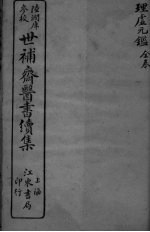 理虛元鑑 全卷
陸潤庠
參校
世補齋醫書續集
上海
江東書局
印行